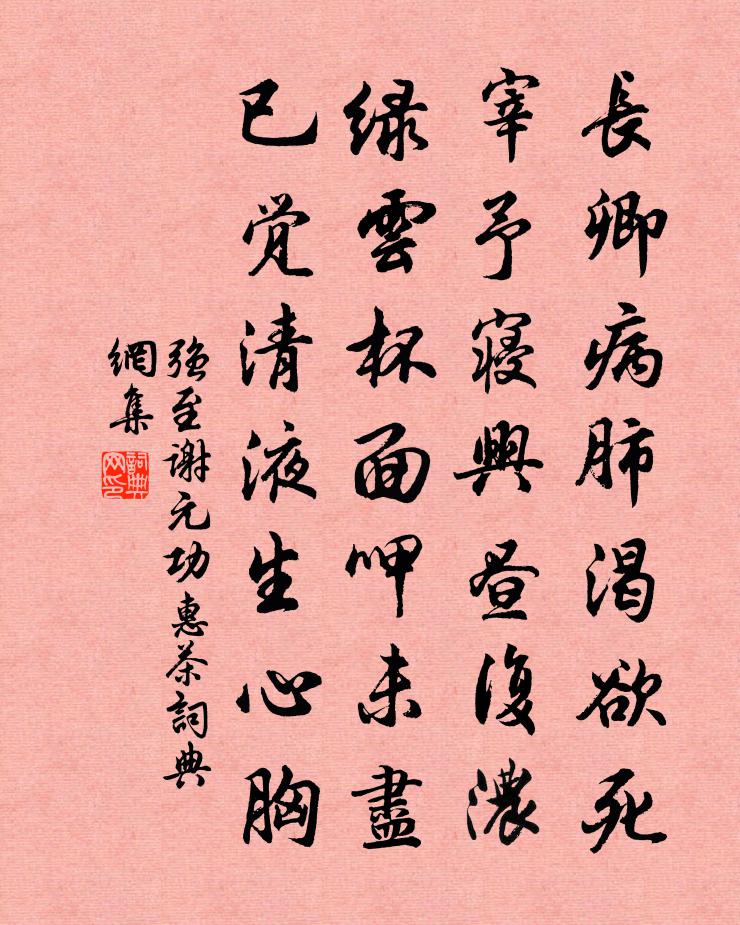 長卿病肺渴欲死
宰予寝興昼復濃
緑雲杯面呷未盡
已觉清液生心胸
强至谢元功惠茶詞典
網集
詞典
网印